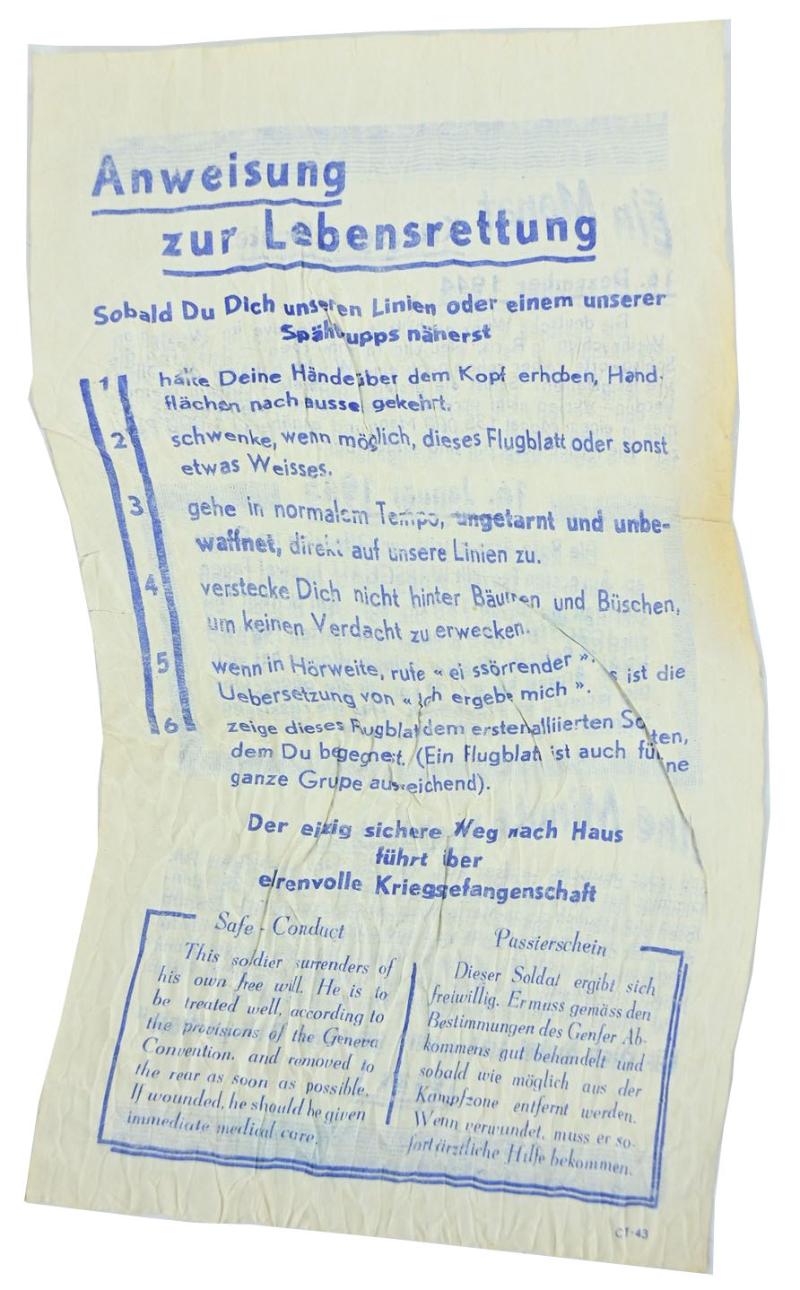 Anweisung
zur Lebensrettung
Sobald Du Dich unseren Linien oder einem unserer
Spähtrupps näherst
1 halte Deine Hände über dem Kopf erhoben, Hand-
flächen nach aussen gekehrt.
2 schwenke, wenn möglich, dieses Flugblatt oder sonst
etwas Weisses.
3 gehe in normalem Tempo, ungetarnt und unbe-
waffnet, direkt auf unsere Linien zu.
4 verstecke Dich nicht hinter Bäumen und Büschen,
um keinen Verdacht zu erwecken.
5 wenn in Hörweite, rufe « ei ssörrender ». s ist die
Uebersetzung von « Ich ergebe mich ».
6 zeige dieses Flugblatt dem ersten alliierten So ten,
dem Du begegnest. (Ein Flugblatt ist auch für ne
ganze Grupe ausreichend).
Der einzig sichere Weg nach Haus
führt über
ehrenvolle Kriegsgefangenschaft
Safe-Conduct
This soldier surrenders of
his own free will. He is to
be treated well, according to
the provisions of the Geneva
Convention, and removed to
the rear as soon as possible.
If wounded, he should be given
immediate medical care.
Passierschein
Dieser Soldat ergibt sich
freiwillig. Er muss gemäss den
Bestimmungen des Genfer Ab-
kommens gut behandelt und
sobald wie möglich aus der
Kampfzone entfernt werden.
Wenn verwundet, muss er so-
fort ärztliche Hilfe bekommen.
CT-43